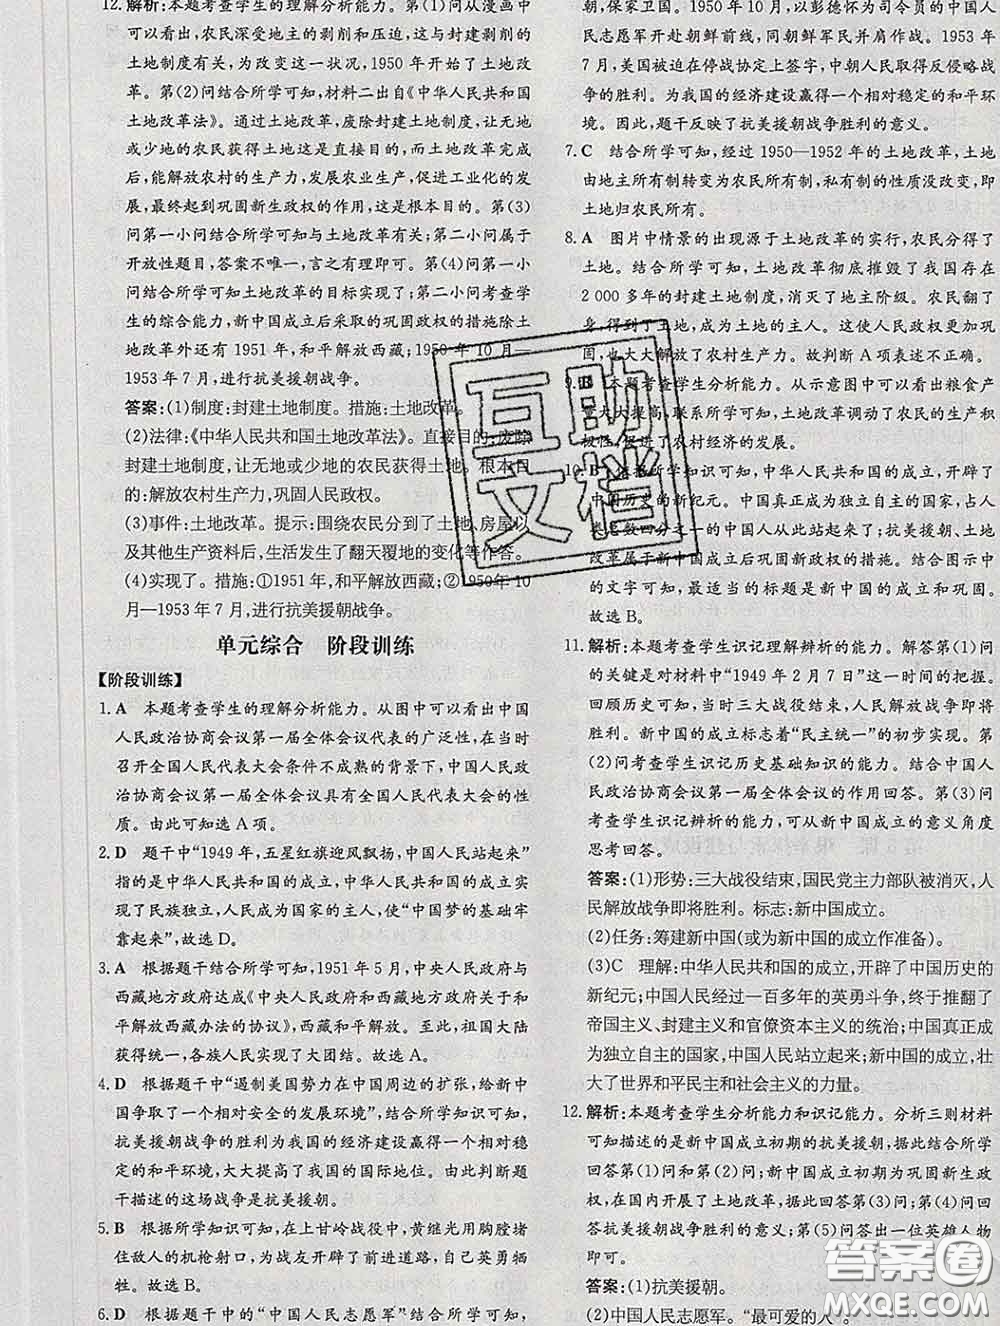 12. 解析:本题考查学生的理解分析能力。第(1)问从漫画中
可以看出,农民深受地主的剥削和压迫,这与封建剥削的
土地制度有关,为改变这一状况,1950年开始了土地改
革。第(2)问结合所学可知,材料二出自《中华人民共和国
土地改革法》。通过土地改革,废除封建土地制度,让无地
或少地的农民获得土地这是直接目的,而土地改革完成
后,能解放农村的生产力,发展农业生产,促进工业化的发
展,最终起到巩固新生政权的作用,这是根本目的。第(3)
问第一小问结合所学可知与土地改革有关;第二小问属于
开放性题目,答案不唯一,言之有理即可。第(4)问第一小
问结合所学可知土地改革的目标实现了;第二小问考查学
生的综合能力,新中国成立后采取的巩固政权的措施除土
地改革外还有1951年,和平解放西藏;1950年10月—
1953年7月,进行抗美援朝战争。
答案:(1)制度:封建土地制度。措施:土地改革。
(2)法律:《中华人民共和国土地改革法》。直接目的:废除
封建土地制度,让无地或少地的农民获得土地。根本目
的:解放农村生产力,巩固人民政权。
(3)事件:土地改革。提示:围绕农民分到了土地、房屋以
及其他生产资料后,生活发生了翻天覆地的变化等作答。
(4)实现了。措施:①1951年,和平解放西藏;②1950年10
月—1953年7月,进行抗美援朝战争。
单元综合 阶段训练
【阶段训练】
1. A 本题考查学生的理解分析能力。从图中可以看出中国
人民政治协商会议第一届全体会议代表的广泛性,在当时
召开全国人民代表大会条件不成熟的背景下,中国人民政
治协商会议第一届全体会议具有全国人民代表大会的性
质。由此可知选A项。
2. D 题干中“1949年,五星红旗迎风飘扬,中国人民站起来”
指的是中华人民共和国的成立,中华人民共和国成立实
现了民族独立,人民成为国家的主人,使“中国梦的基础牢
靠起来”,故选D。
3. A 根据题干结合所学可知,1951年5月,中央人民政府与
西藏地方政府达成《中央人民政府和西藏地方政府关于和
平解放西藏办法的协议》,西藏和平解放。至此,祖国大陆
获得统一,各族人民实现了大团结。故选A。
4. D 根据题干中“遏制美国势力在中国周边的扩张,给新中
国争取了一个相对安全的发展环境”,结合所学知识可知,
抗美援朝战争的胜利为我国的经济建设赢得一个相对稳
定的和平环境,大大提高了我国的国际地位。由此判断题
干描述的这场战争是抗美援朝。
5. D 根据所学知识可知,在上甘岭战役中,黄继光用胸膛堵
住敌人的机枪射口,为战友开辟了前进道路,自己英勇牺
牲。故选B。
6. D 根据题干的“中国人民志愿军”结合所学可知,
朝、保家卫国。1950年10月,以彭德怀为司令员的中国人
民志愿军开赴朝鲜前线,同朝鲜军民并肩作战。1953年
7月,美国被迫在停战协定上签字,中朝人民取得反侵略战
争的胜利。为我国的经济建设赢得一个相对稳定的和平环
境。因此,题干反映了抗美援朝战争胜利的意义。
7. C 结合所学可知,经过1950—1952年的土地改革,土地
由地主所有制转变为农民所有制,私有制的性质没改变,即
土地归农民所有。
8. A 图片中情景的出现源于土地改革的实行,农民分得了
土地。结合所学可知,土地改革彻底摧毁了我国存在
2 000多年的封建土地制度,消灭了地主阶级。农民翻了
身,得到了土地,成为土地的主人。这使人民政权更加巩
固,也大大解放了农村生产力。故判断A项表述不正确。
9. B 本题考查学生分析能力。从示意图中可以看出粮食产
量大大提高,联系所学可知,土地改革调动了农民的生产积
极性,促进了农村经济的发展。
10. B 依据所学知识可知,中华人民共和国的成立,开辟了
中国历史的新纪元。中国真正成为独立自主的国家,占人
类总数四分之一的中国人从此站起来了;抗美援朝、土地
改革属于新中国成立后巩固新政权的措施。结合图示中
的文字可知,最适合的标题是新中国的成立和巩固。
故选B。
11. 解析:本题考查学生识记理解辨析的能力。解答第(1)问
的关键是对材料中“1949年2月7日”这一时间的把握。
回顾历史可知,当时三大战役结束,人民解放战争即将
胜利。新中国的成立标志着“民主统一”的初步实现。第
(2)问考查学生识记历史基础知识的能力。结合中国人
民政治协商会议第一届全体会议的作用回答。第(3)问
考查学生识记辨析的能力,可从新中国成立的意义角度
思考回答。
答案:(1)形势:三大战役结束,国民党主力部队被消灭,人
民解放战争即将胜利。标志:新中国成立。
(2)任务:筹建新中国(或为新中国的成立作准备)。
(3)C 理解:中华人民共和国的成立,开辟了中国历史的
新纪元;中国人民经过一百多年的英勇斗争,终于推翻了
帝国主义、封建主义和官僚资本主义的统治;中国真正成
为独立自主的国家,中国人民站立起来;新中国的成立,壮
大了世界和平民主和社会主义的力量。
12. 解析:本题考查学生分析能力和识记能力。分析三则材料
可知描述的是新中国成立初期的抗美援朝,据此结合所学
回答第(1)问和第(2)问;新中国成立初期为巩固新生政
权,在国内开展了土地改革,据此回答第(3)问;第(4)问回
答抗美援朝战争胜利的意义;第(5)问答出一位英雄人物
即可。
答案:(1)抗美援朝。
(2)中国人民志愿军。“最可爱的人”。
互助
文档
答案圈
MXQE.COM